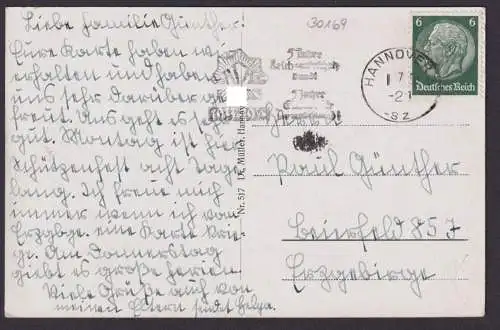 Liebe Familie Günther!
Eure Karte haben wir
erhalten und haben
uns sehr darüber ge
freut. Uns geht es sehr
gut. Montag ist hier
Schützenfest acht Tage
lang. Ich freue mich
immer wenn ich vom
Erzgbge. eine Karte krie-
ge. Am Donnerstag
giebt es große Ferien.
Viele Grüße auch von
meinen Eltern sendet Helga.
Nr. 517 Dr. Müller, Hannov
30169
5 Jahre
5 Jahre
HANNOVER
7
-2
SZ
6 6
Deutsches Reich
Herrn
Paul Günther
Beierfeld 857
Erzgebirge